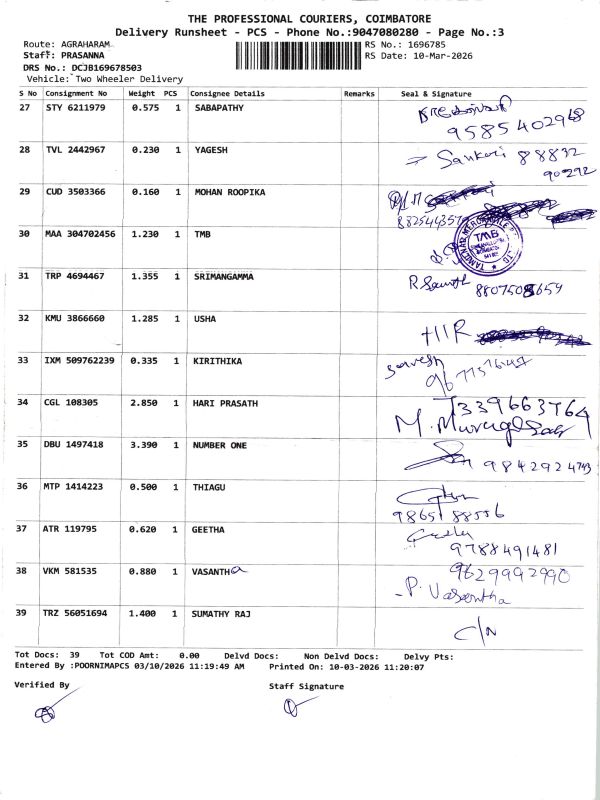 THE PROFESSIONAL COURIERS, COIMBATORE
Delivery Runsheet - PCS - Phone No.:9047080280 - Page No.:3
Route: AGRAHARAM
RS No.: 1696785
Staff: PRASANNA
RS Date: 10-Mar-2026
DRS No.: DCJB169678503
Vehicle: Two Wheeler Delivery
S No Consignment No Weight PCS Consignee Details Remarks Seal & Signature
27 STY 6211979 0.575 1 SABAPATHY
9585402968
28 TVL 2442967 0.230 1 YAGESH
Sankari 88832
90292
29 CUD 3503366 0.160 1 MOHAN ROOPIKA
30 MAA 304702456 1.230 1 TMB
TMB
31 TRP 4694467 1.355 1 SRIMANGAMMA
32 KMU 3866660 1.285 1 USHA
33 IXM 509762239 0.335 1 KIRITHIKA
Sarvesh
34 CGL 108305 2.850 1 HARI PRASATH
7339663764
35 DBU 1497418 3.390 1 NUMBER ONE
9842924743
36 MTP 1414223 0.500 1 THIAGU
37 ATR 119795 0.620 1 GEETHA
Geetha
9788491481
38 VKM 581535 0.880 1 VASANTHA
9629992990
P. Vasantha
39 TRZ 56051694 1.400 1 SUMATHY RAJ
C/N
Tot Docs: 39 Tot COD Amt: 0.00 Delvd Docs: Non Delvd Docs: Delvy Pts:
Entered By :POORNIMAPCS 03/10/2026 11:19:49 AM Printed On: 10-03-2026 11:20:07
Verified By
Staff Signature